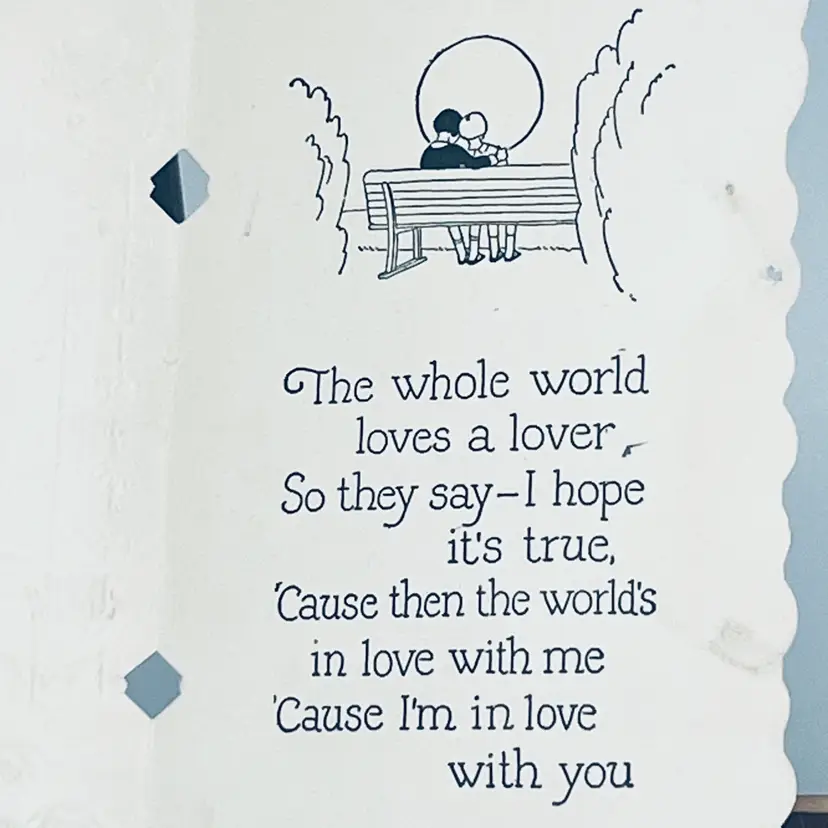 The whole world
loves a lover,
So they say-I hope
it's true,
'Cause then the world's
in love with me
'Cause I'm in love
with you